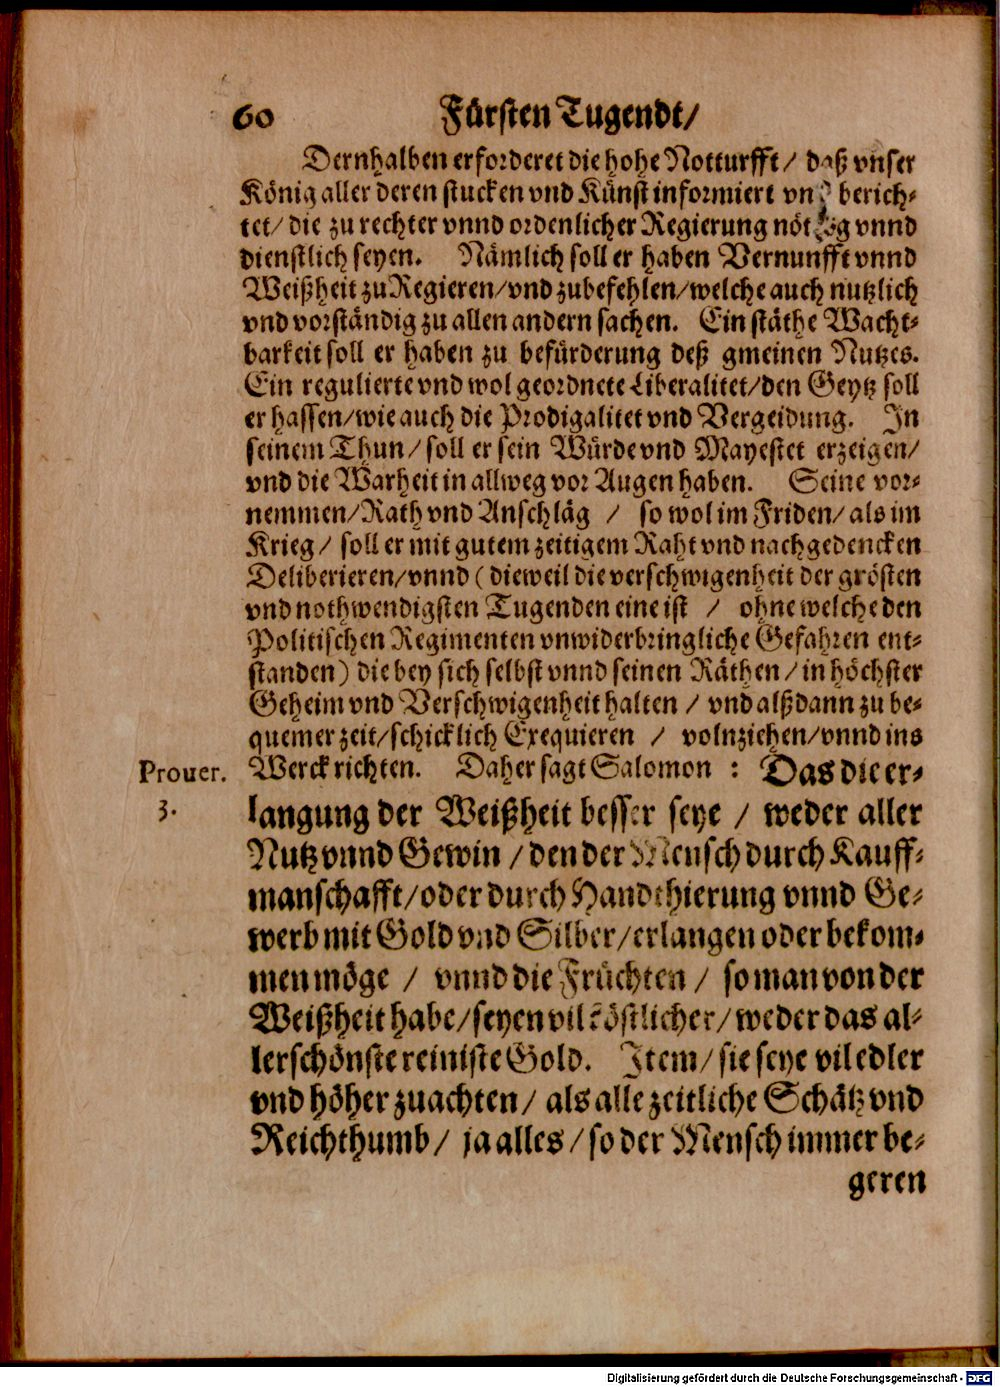 60 Fürsten Tugendt/
Dernhalben erforderet die hohe Notturfft/ daß vnser
König aller deren stucken vnd Künst informiert vnd berich-
tet/ die zu rechter vnnd ordenlicher Regierung nöttig vnnd
dienstlich seyen. Nämlich soll er haben Vernunfft vnnd
Weißheit zu Regieren/ vnd zubefehlen/ welche auch nutzlich
vnd vorständig zu allen andern sachen. Ein stäthe Wacht-
barkeit soll er haben zu befürderung deß gmeinen Nutzes.
Ein regulierte vnd wol geordnete Liberalitet/ den Geytz soll
er hassen/ wie auch die Prodigalitet vnd Vergeidung. In
seinem Thun/ soll er sein Würde vnd Mayestet erzeigen/
vnd die Warheit in allweg vor Augen haben. Seine vor-
nemmen/ Rath vnd Anschläg / so wol im Friden/ als im
Krieg/ soll er mit gutem zeitigem Raht vnd nachgedencken
Deliberieren/ vnnd (dieweil die verschwigenheit der grösten
vnd nothwendigsten Tugenden eine ist / ohne welche den
Politischen Regimenten vnwiderbringliche Gefahren ent-
standen) die bey sich selbst vnnd seinen Räthen/ in höchster
Geheim vnd Verschwigenheit halten / vnd alßdann zu be-
quemer zeit/ schicklich Exequieren / volnziehen/ vnnd ins
Prouer. Werck richten. Daher sagt Salomon : Das die er-
3. langung der Weißheit besser seye / weder aller
Nutz vnnd Gewin / den der Mensch durch Kauff-
manschafft/ oder durch Handthierung vnnd Ge-
werb mit Gold vnd Silber/ erlangen oder bekom-
men möge / vnnd die Früchten / so man von der
Weißheit habe/ seyen vil köstlicher/ weder das al-
lerschönste reiniste Gold. Item/ sie seye vil edler
vnd höher zuachten/ als alle zeitliche Schätz vnd
Reichthumb/ ja alles/ so der Mensch immer be-
geren
Digitalisierung gefördert durch die Deutsche Forschungsgemeinschaft - DFG